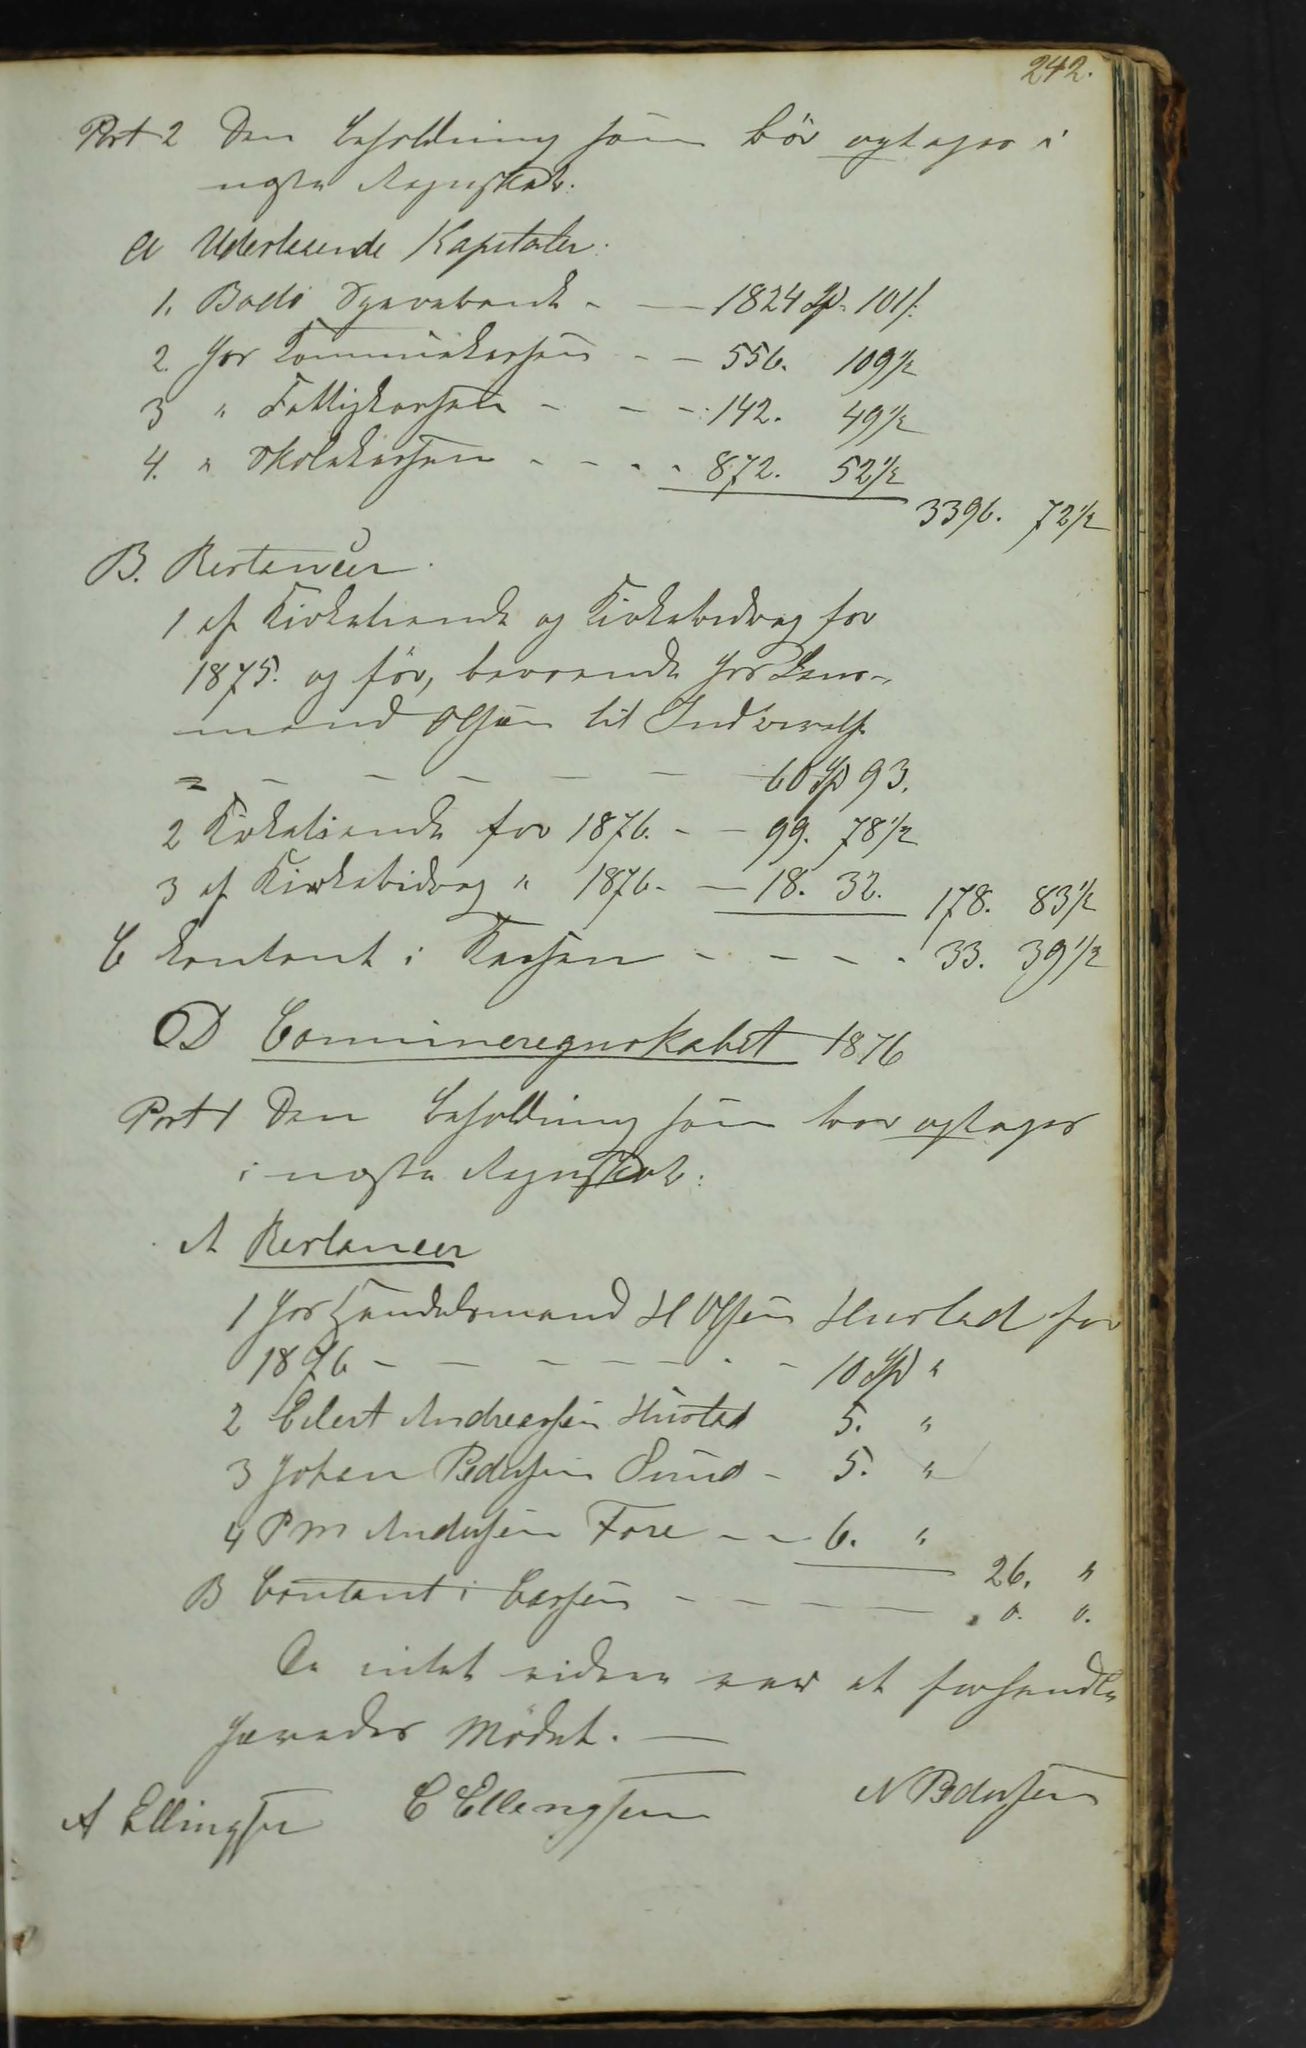 242.
Post 2 Den Beholdning som bör optages i
næste Regnskab.
a Udestaaende Kapitaler.
1. Bodö Sparebank - — 1824 Spd. 101 s.
2. Hos Communekassen - - 556. 109 1/2
3 " Fattigkassen - - - 142. 49 1/2
4. " Skolekassen - - - - 872. 52 1/2
3396. 72 1/2
B. Restancer.
1 af Kirketiende og Kirkebidrag for
1875. og för, beroende hos Lens-
mand Olsen til Inddrivelse
= - - - - - 60 Spd 93.
2 Kirketiende for 1876. - - 99. 78 1/2
3 af Kirkebidrag " 1876 - — 18. 32. 178. 83 1/2
C Contant i Kassen - - - - - 33. 39 1/2
D Communeregnskabet 1876
Post 1 Den Beholdning som bör optages
i næste Regnskab:
A Restancer
1 Hos Handelsmand H Olsen Hustad for
1876 - - - - - - - - 10 Spd "
2 Edert Andreassen Hustad 5. "
3 Johan Pedersen Sund - 5. "
4 P M Andersen Fore - - 6. "
26. "
B Contant i Cassen - - - - - - 0. 0.
Da intet videre var at forhandle
hævedes Mödet. —
A Ellingsen C Ellengsen N Pedersen